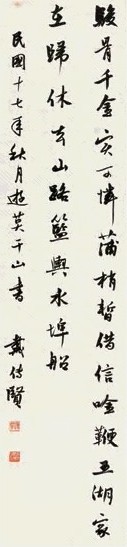 駿骨千金實可憐蒲梢暫借信唫鞭五湖家
在歸休去山路籃輿水埠船
民國十七年秋月遊莫干山書 戴傳賢